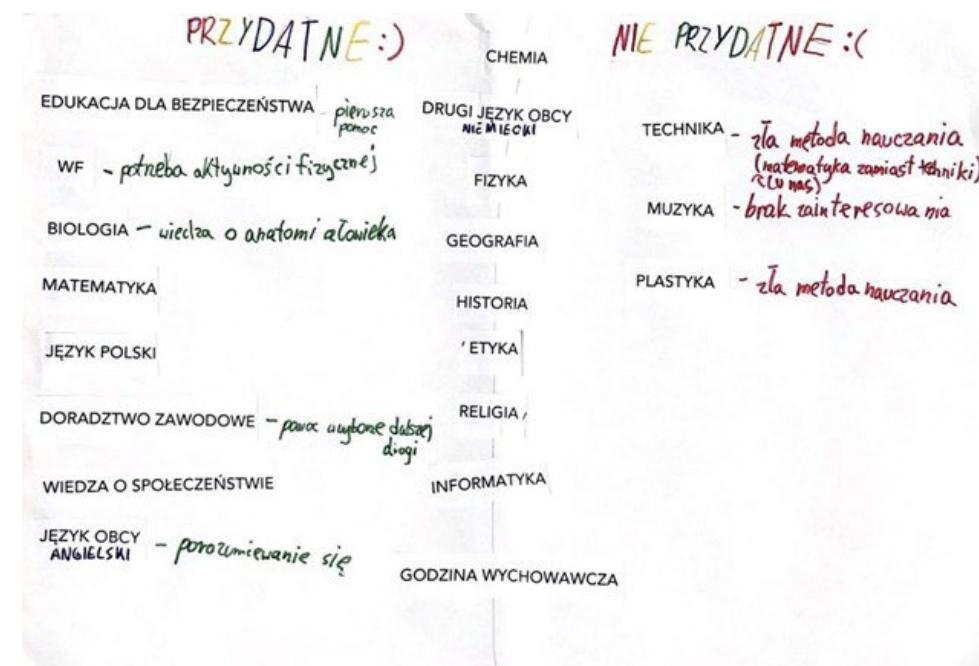 PRZYDATNE :)
EDUKACJA DLA BEZPIECZEŃSTWA - pierwsza
pomoc
WF - potrzeba aktywności fizycznej
BIOLOGIA - wiedza o anatomi człowieka
MATEMATYKA
JĘZYK POLSKI
DORADZTWO ZAWODOWE - pomoc wyborze dalszej
drogi
WIEDZA O SPOŁECZEŃSTWIE
JĘZYK OBCY
ANGIELSKI - porozumiewanie się
CHEMIA
DRUGI JĘZYK OBCY
NIEMIECKI
FIZYKA
GEOGRAFIA
HISTORIA
ETYKA
RELIGIA
INFORMATYKA
GODZINA WYCHOWAWCZA
NIE PRZYDATNE :(
TECHNIKA - zła metoda nauczania
(matematyka zamiast techniki)
(u nas)
MUZYKA - brak zainteresowania
PLASTYKA - zła metoda nauczania